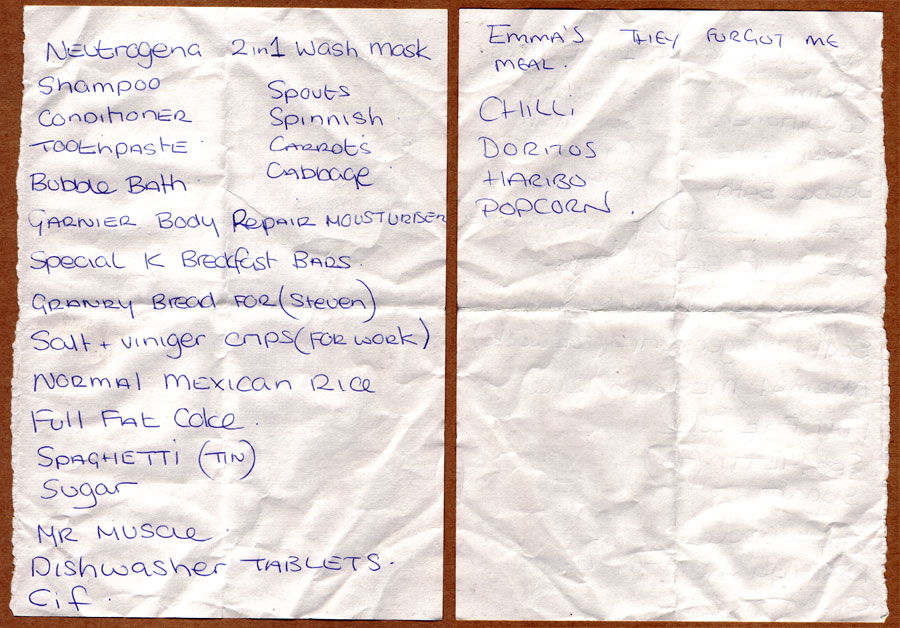 Neutrogena 2in1 wash mask
Shampoo
Conditioner
Toothpaste
Bubble Bath
Spouts
Spinnish
Carrots
Cabbage
Garnier Body Repair Mousturiser
Special K Breakfast Bars.
Granry Bread for (Steven)
Salt + viniger crips (for work)
Normal Mexican Rice
Full Fat Coke.
Spaghetti (Tin)
Sugar
Mr Muscle.
Dishwasher Tablets.
Cif.
Emma's they forgot me
meal.
Chilli
Doritos
Haribo
Popcorn.